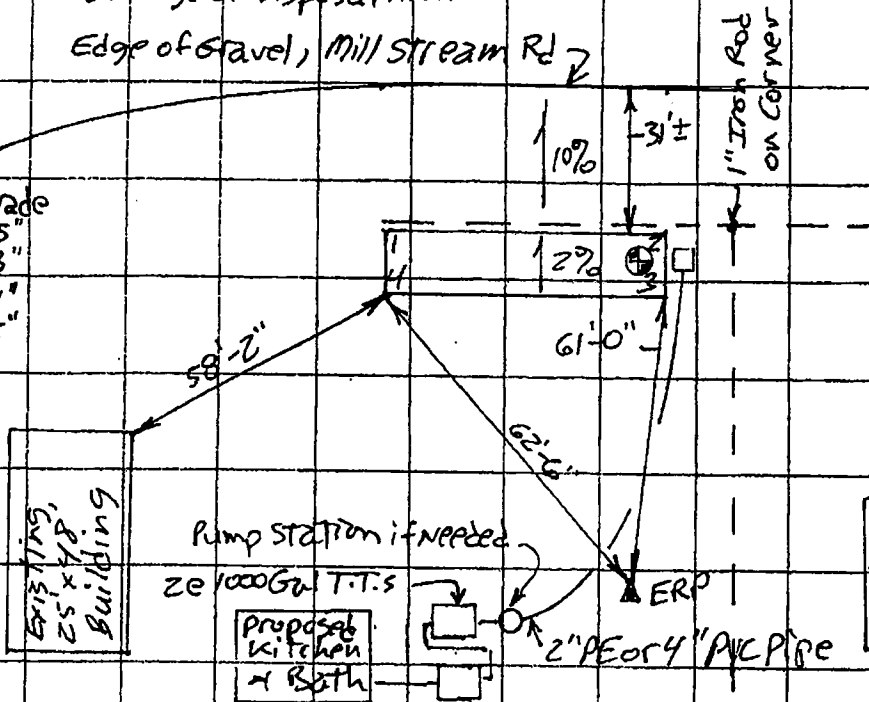 Edge of Gravel, Mill Stream Rd
1" Iron Rod
on Corner
31'±
10%
1
2
2%
4
3
61'-0"
58'-2"
62'-6"
Existing
25' x 48'
Building
Pump Station if Needed
2e 1000 Gal T.T.s
Proposed
Kitchen
& Bath
ERP
2" PE or 4" PVC Pipe